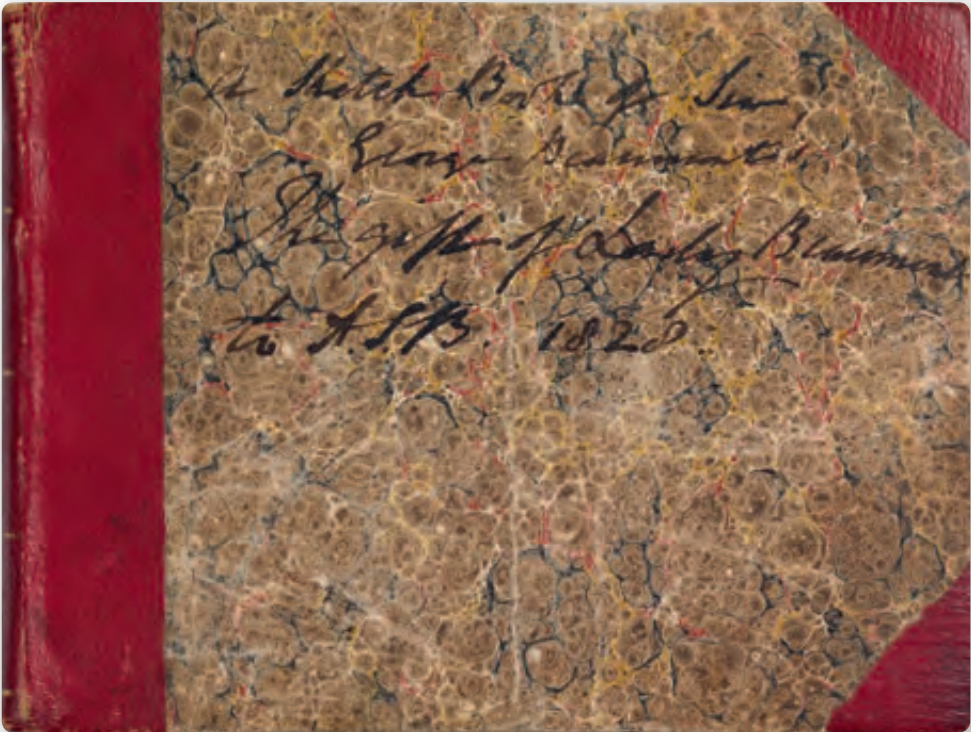 A Sketch Book of Sir
George Beaumont's,
The gift of Lady Beaumont
to A.S.B. 1828.